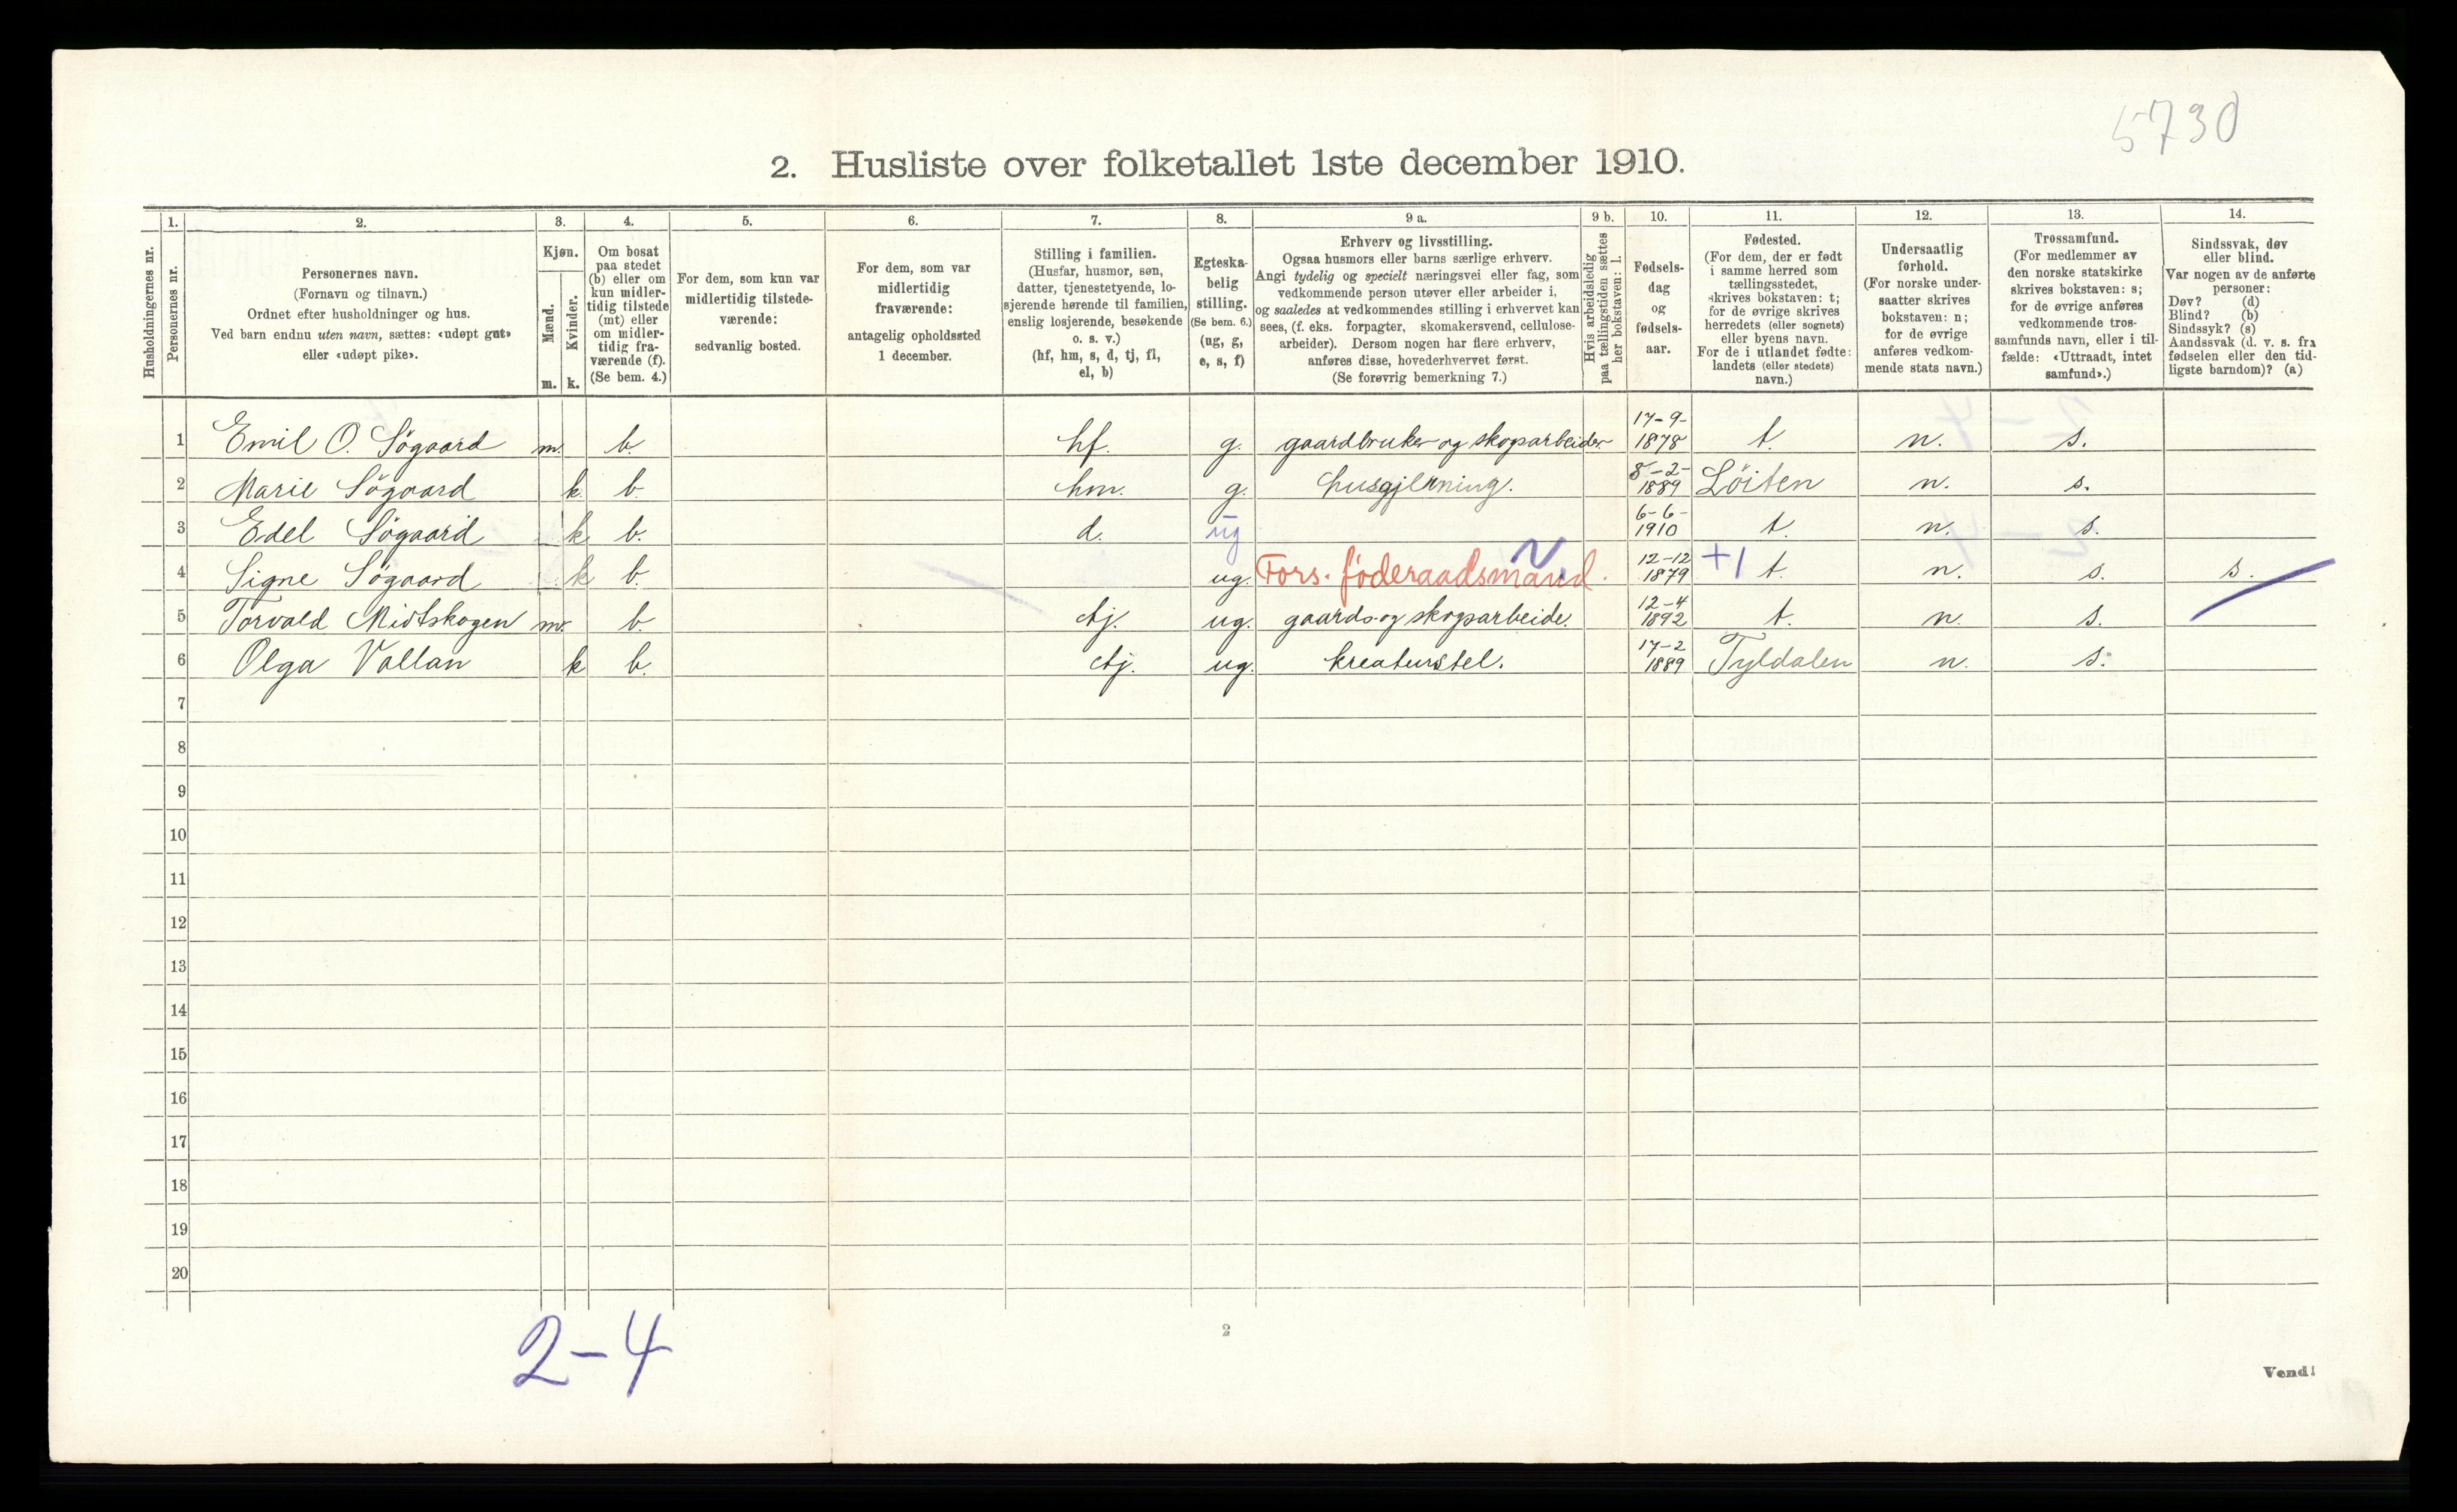 5730
2. Husliste over folketallet 1ste december 1910.
1. 2. 3. 4. 5. 6. 7. 8. 9 a. 9 b. 10. 11. 12. 13. 14.
Husholdningernes nr.
Personernes nr.
Personernes navn.
(Fornavn og tilnavn.)
Ordnet efter husholdninger og hus.
Ved barn endnu uten navn, sættes: «udøpt gut»
eller «udøpt pike».
Kjøn.
Mænd.
Kvinder.
m. k.
Om bosat
paa stedet
(b) eller om
kun midler-
tidig tilstede
(mt) eller
om midler-
tidig fra-
værende (f).
(Se bem. 4.)
For dem, som kun var
midlertidig tilstede-
værende:
sedvanlig bosted.
For dem, som var
midlertidig
fraværende:
antagelig opholdssted
1 december.
Stilling i familien.
(Husfar, husmor, søn,
datter, tjenestetyende, lo-
sjerende hørende til familien,
enslig losjerende, besøkende
o. s. v.)
(hf, hm, s, d, tj, fl,
el, b)
Egteska-
belig
stilling.
(Se bem. 6.)
(ug, g,
e, s, f)
Erhverv og livsstilling.
Ogsaa husmors eller barns særlige erhverv.
Angi tydelig og specielt næringsvei eller fag, som
vedkommende person utøver eller arbeider i,
og saaledes at vedkommendes stilling i erhvervet kan
sees, (f. eks. forpagter, skomakersvend, cellulose-
arbeider). Dersom nogen har flere erhverv,
anføres disse, hovederhvervet først.
(Se forøvrig bemerkning 7.)
Hvis arbeidsledig
paa tællingstiden sættes
her bokstaven: l.
Fødsels-
dag
og
fødsels-
aar.
Fødested.
(For dem, der er født
i samme herred som
tællingsstedet,
skrives bokstaven: t;
for de øvrige skrives
herredets (eller sognets)
eller byens navn.
For de i utlandet fødte:
landets (eller stedets)
navn.)
Undersaatlig
forhold.
(For norske under-
saatter skrives
bokstaven: n;
for de øvrige
anføres vedkom-
mende stats navn.)
Trossamfund.
(For medlemmer av
den norske statskirke
skrives bokstaven: s;
for de øvrige anføres
vedkommende tros-
samfunds navn, eller i til-
fælde: «Uttraadt, intet
samfund».)
Sindssvak, døv
eller blind.
Var nogen av de anførte
personer:
Døv? (d)
Blind? (b)
Sindssyk? (s)
Aandssvak (d. v. s. fra
fødselen eller den tid-
ligste barndom)? (a)
1 Emil O. Søgaard m. b. hf. g. gaardbruker og skogsarbeider 17-9-1878 t. n. s.
2 Marie Søgaard k. b. hm. g. husgjerning. 8-2-1889 Löiten n. s.
3 Edel Søgaard k b. d. ug 6-6-1910 t. n. s.
4 Signe Søgaard k b. ug. Fors. föderaadsmand. N. 12-12 1879 +1 t. n. s. s.
5 Torvald Midtskogen m. b. tj. ug. gaards- og skogsarbeide. 12-4 1892 t. n. s.
6 Olga Vollan k b. tj. ug. kreaturstel. 17-2 1889 Tyldalen n. s.
7
8
9
10
11
12
13
14
15
16
17
18
19
20
2-4
2
Vend!